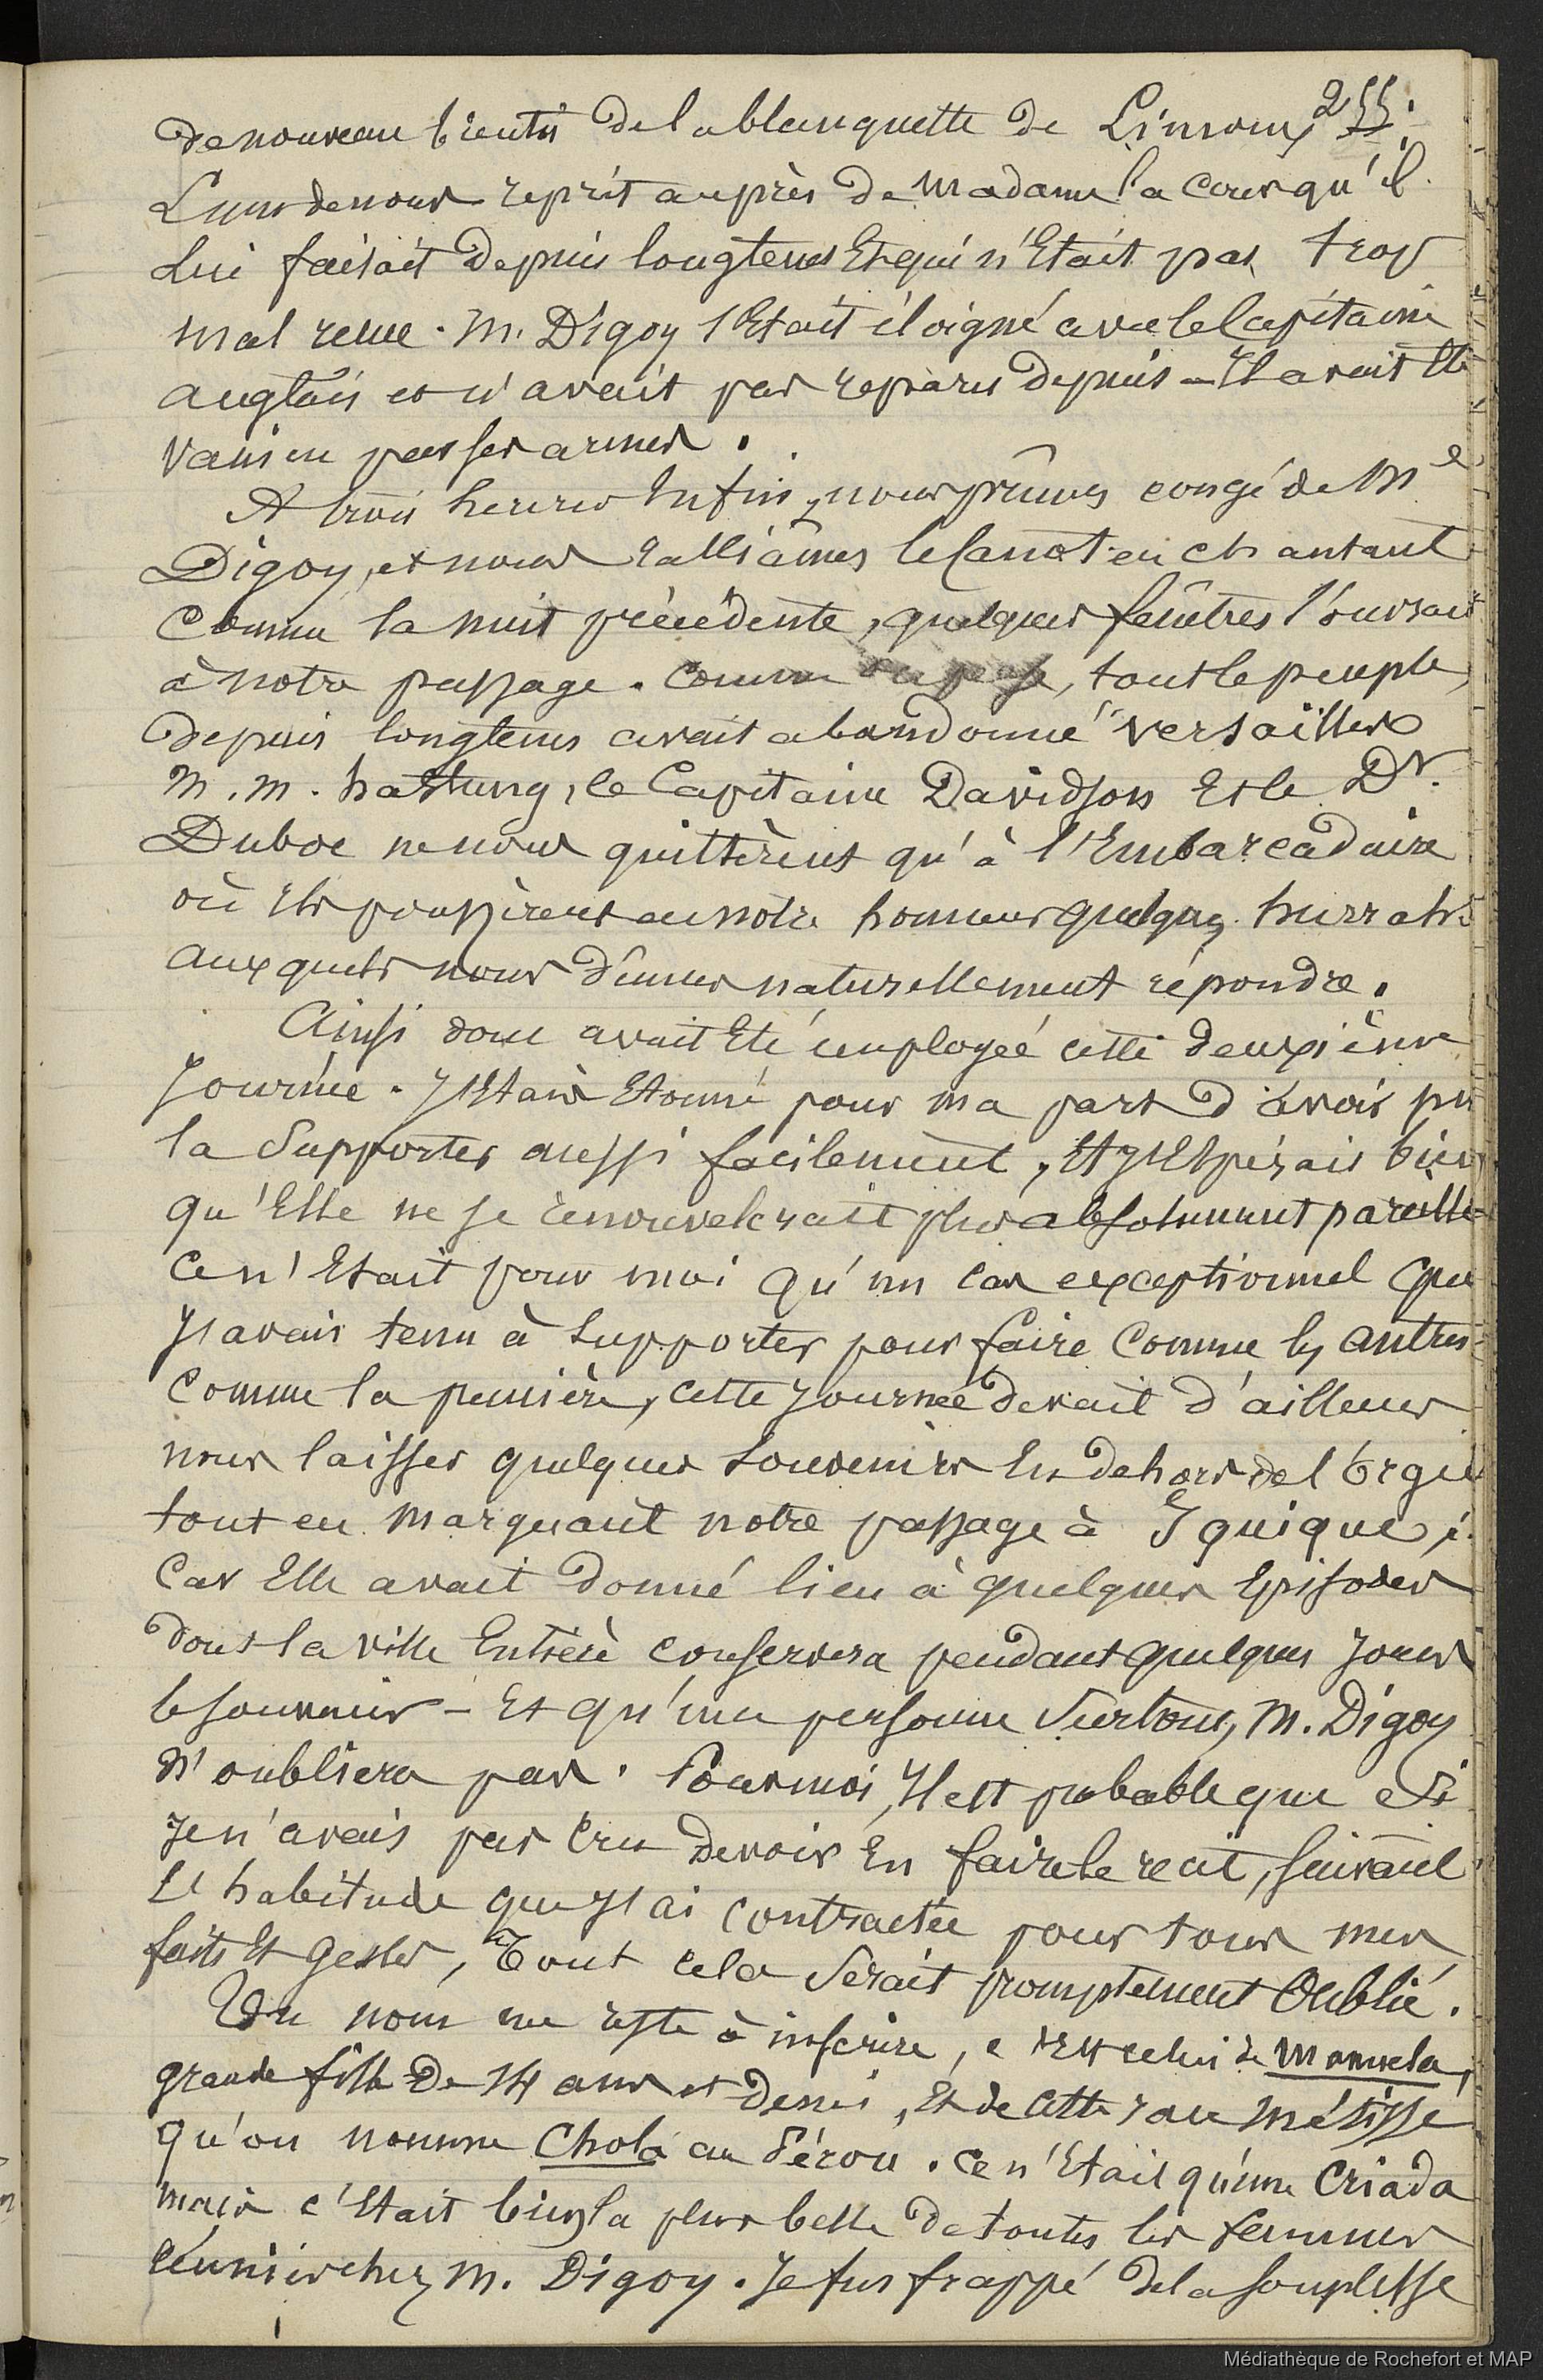 255.
de nouveau bientôt de la blanquette de Limoux
L'un de nous reprit auprès de Madame la cour qu'il
lui faisait depuis longtems Et qui n'Etait pas trop
mal reçue. M. Digoy s'Etait éloigné avec le Capitaine
anglais et n'avait pas reparu depuis – Il avait Eté
vaincu par ses armes.
A trois heures Enfin, nous prîmes congé de Me
Digoy, et nous ralliâmes le Canot en chantant
Comme la nuit précédente, quelques fenêtres s'ouvrait
à notre passage. Comme , tout le peuple,
depuis longtems avait abandonné Versailles
M. M. hattung, le Capitaine Davidson Et le Dr.
Duboc ne nous quittèrent qu'à l'Embarcadaire
où Ils poussèrent en notre honneur quelques hurrahs
auxquels nous dûmes naturellement répondre.
Ainsi donc avait Eté employée cette deuxième
Journée. J'Etais Etonné pour ma part d'avoir pu
la Supporter aussi facilement, Et J'Espérais bien
qu'Elle ne se renouvelerait plus absolument pareille
Ce n'Etait pour moi qu'un cas exceptionnel que
J'avais tenu à supporter pour faire Comme les autres
Comme la première, cette Journée devait d'ailleurs
nous laisser quelques souvenirs En dehors de l'Orgie
tout en marquant notre passage à Iquique,
Car Elle avait donné lieu à quelques Episodes
dont la ville Entière conservera pendant quelques Jours
le souvenir – Et qu'une personne Surtout, M. Digoy
N'oubliera pas. Pour moi, Il est probable que Si
Je n'avais pas Cru devoir En faire le récit, suivant
l'habitude que J'ai contractée pour tous mes
faits Et Gestes, Tout cela Serait promptement Oublié.
Un nom me reste à inscrire, c'Est celui de Manuela,
grande fille de 14 ans et demi, Et de cette race métisse
qu'on nomme Chola au Pérou. Ce n'Etait qu'une Criada
mais c'Etait bien la plus belle de toutes les femmes
réunies chez M. Digoy. Je fus frappé de la souplesse
Médiathèque de Rochefort et MAP